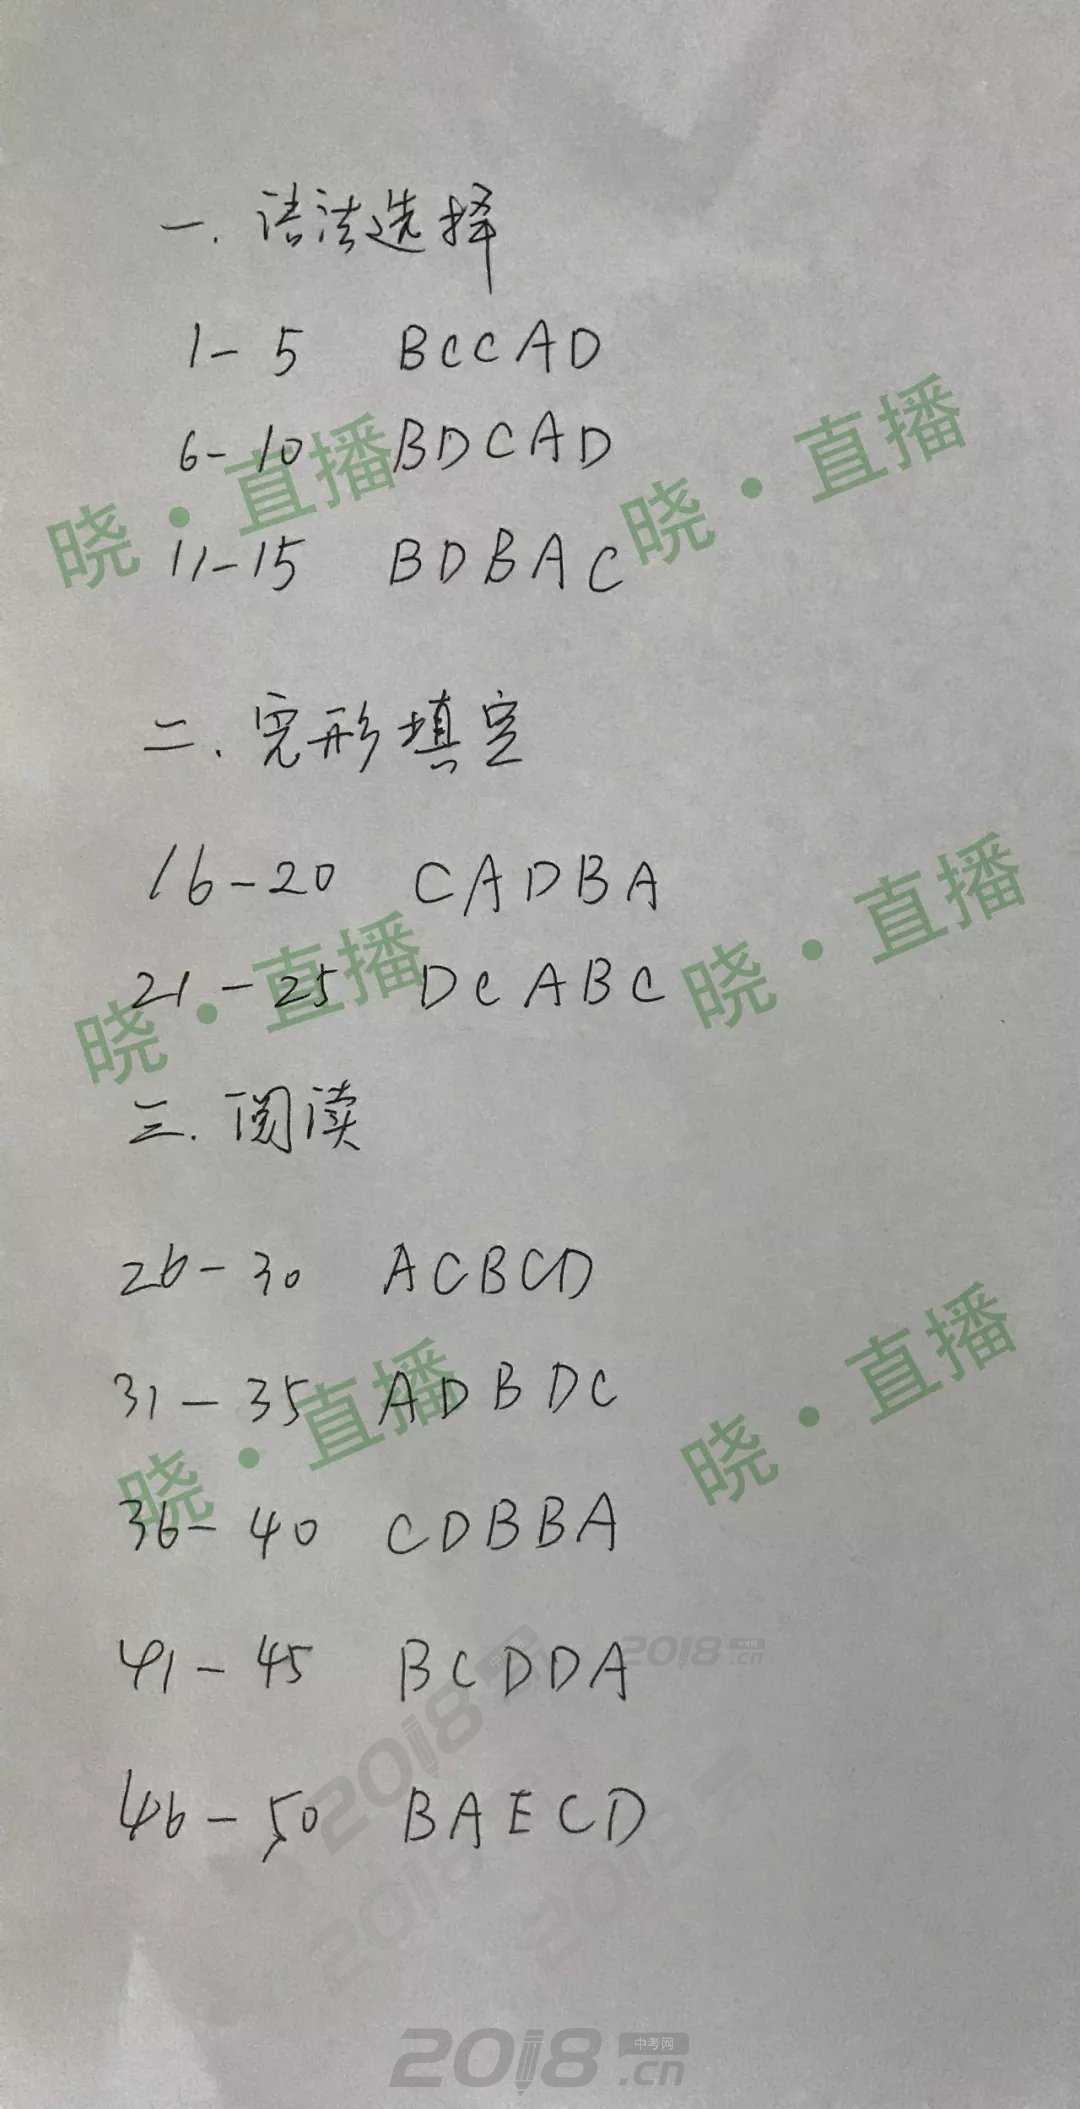 一. 语法选择
1-5 BCCAD
6-10 BDCAD
11-15 BDBAC
二. 完形填空
16-20 CADBA
21-25 DCABC
三. 阅读
26-30 ACBCD
31-35 ADBDC
36-40 CDBBA
41-45 BCDDA
46-50 BAECD
晓·直播
晓·直播
晓·直播
晓·直播
晓·直播
晓·直播
2018中考网.cn
2018
2018
2018
2018中考网.cn